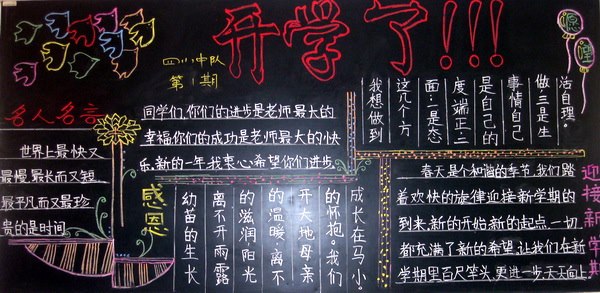 开学了!!!
中队
第1期
名人名言
世界上最快又
最慢最长而又短
最平凡而又最珍
贵的是时间
同学们,你们的进步是老师最大的
幸福你们的成功是老师最大的快
乐,新的一年我衷心希望你们进步
感恩
幼苗的生长
离不开雨露
的滋润阳光
的温暖;离不
开大地母亲
的怀抱。我们
成长在马小。
我想做到
这几个方
面:一是态
度端正二
是自己的
事情自己
做三是生
活自理。
春天是个和谐的季节,我们踏
着欢快的旋律迎接新学期的
到来,新的开始新的起点,一切
都充满了新的希望,让我们在新
学期里百尺竿头,更进一步天天向上
迎接新学期